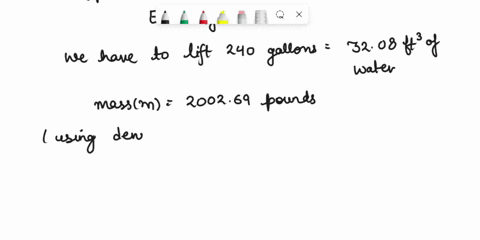 E
we have to lift 240 gallons = 32.08 ft³ of water
mass(m) = 2002.69 pounds
( using den